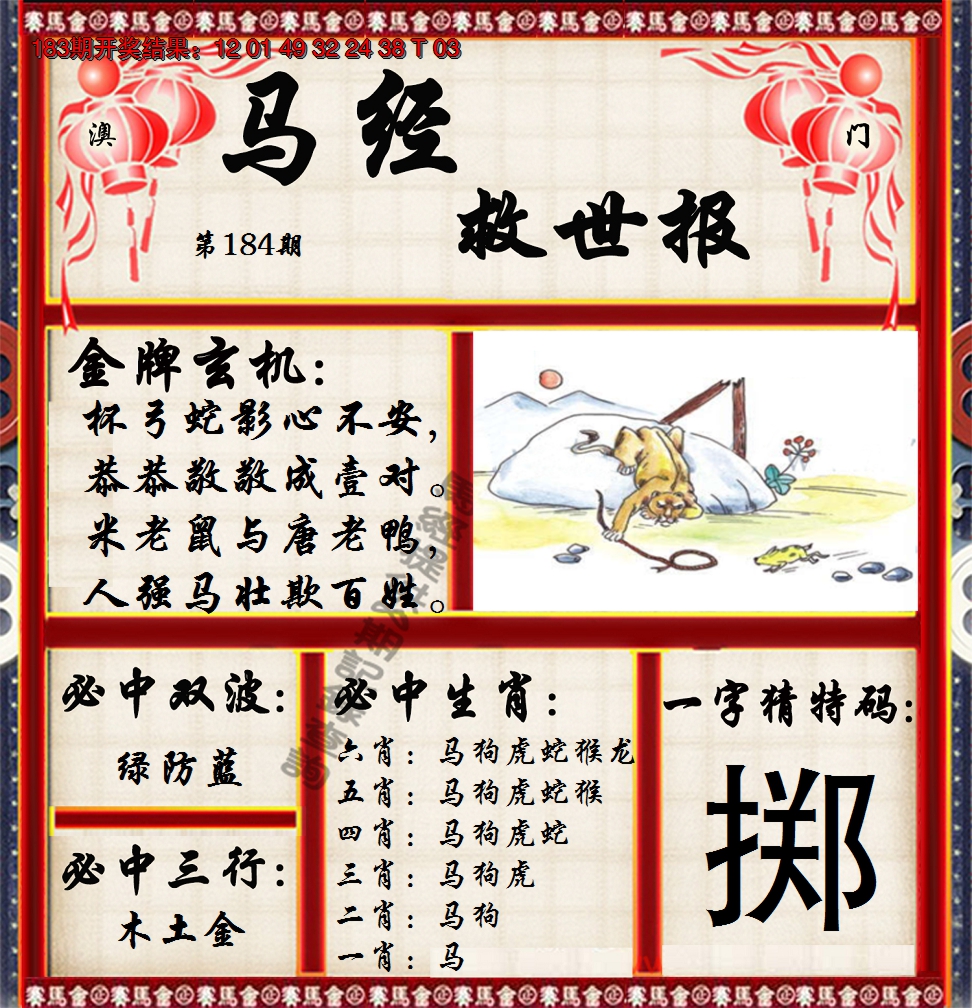 183期开奖结果：12 01 49 32 24 38 T 03
澳
门
马经
救世报
第184期
金牌玄机：
杯弓蛇影心不安，
恭恭敬敬成壹对。
米老鼠与唐老鸭，
人强马壮欺百姓。
必中双波：
绿防蓝
必中三行：
木土金
必中生肖：
六肖：马狗虎蛇猴龙
五肖：马狗虎蛇猴
四肖：马狗虎蛇
三肖：马狗虎
二肖：马狗
一肖：马
一字猜特码：
掷